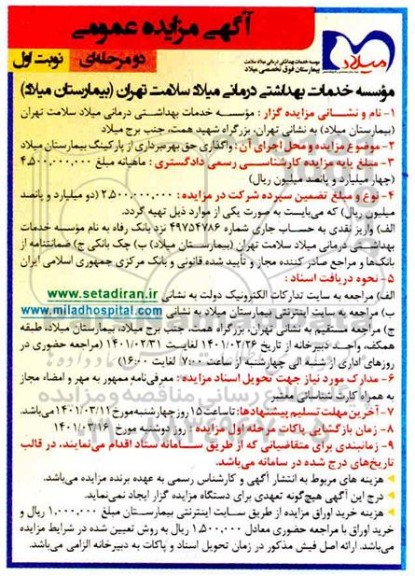 آگهی مزایده عمومی
دو مرحله‌ای
نوبت اول
میلاد
موسسه خدمات بهداشتی درمانی میلاد سلامت
بیمارستان فوق تخصصی میلاد
مؤسسه خدمات بهداشتی درمانی میلاد سلامت تهران (بیمارستان میلاد)
۱- نام و نشانی مزایده گزار : مؤسسه خدمات بهداشتی درمانی میلاد سلامت تهران
(بیمارستان میلاد) به نشانی تهران، بزرگراه شهید همت، جنب برج میلاد
۲- موضوع مزایده و محل اجرای آن : واگذاری حق بهره‌برداری از پارکینگ بیمارستان میلاد
۳- مبلغ پایه مزایده کارشناسی رسمی دادگستری : ماهیانه مبلغ ۴,۵۰۰,۰۰۰,۰۰۰
(چهار میلیارد و پانصد میلیون ریال)
۴- نوع و مبلغ تضمین سپرده شرکت در مزایده : ۲,۵۰۰,۰۰۰,۰۰۰ (دو میلیارد و پانصد
میلیون ریال) که می‌بایست به صورت یکی از موارد ذیل تهیه گردد.
الف) واریز نقدی به حساب جاری شماره ۴۹۷۵۴۷۸۶ نزد بانک رفاه به نام مؤسسه خدمات
بهداشتی درمانی میلاد سلامت تهران (بیمارستان میلاد) ب) چک بانکی ج) ضمانتنامه از
بانک‌ها و مراجع صادر کننده مجاز و تأیید شده قانونی و بانک مرکزی جمهوری اسلامی ایران
۵- نحوه دریافت اسناد :
الف) مراجعه به سایت تدارکات الکترونیک دولت به نشانی www.setadiran.ir
ب) مراجعه به سایت اینترنتی بیمارستان میلاد به نشانی www.miladhospital.com
ج) مراجعه مستقیم به نشانی تهران، بزرگراه همت، جنب برج میلاد، بیمارستان میلاد، طبقه
همکف، واحد دبیرخانه از تاریخ ۱۴۰۱/۰۲/۲۶ لغایت ۱۴۰۱/۰۲/۳۱ (مراجعه حضوری در
روزهای اداری از شنبه الی چهارشنبه از ساعت ۷:۰۰ لغایت ۱۶:۰۰)
۶- مدارک مورد نیاز جهت تحویل اسناد مزایده : معرفی‌نامه ممهور به مهر و امضاء مجاز
به همراه کارت شناسایی معتبر
۷- آخرین مهلت تسلیم پیشنهادها: تا ساعت ۱۵ روز چهارشنبه مورخ ۱۴۰۱/۰۳/۱۱ می‌باشد.
۸- زمان بازگشایی پاکات مرحله اول مزایده : روز دوشنبه مورخ ۱۴۰۱/۰۳/۱۶
۹- زمانبندی برای متقاضیانی که از طریق سامانه ستاد اقدام می‌نمایند، در قالب
تاریخ‌های درج شده در سامانه می‌باشد.
هزینه های مربوط به انتشار آگهی و کارشناس رسمی به عهده برنده مزایده می‌باشد.
درج این آگهی هیچ‌گونه تعهدی برای دستگاه مزایده گزار ایجاد نمی‌نماید.
هزینه خرید اوراق مزایده از طریق سایت اینترنتی بیمارستان مبلغ ۱,۰۰۰,۰۰۰ ریال و
خرید اوراق با مراجعه حضوری معادل ۱,۵۰۰,۰۰۰ ریال به روش تعیین شده در شرایط مزایده
می‌باشد. ارائه اصل فیش مذکور در زمان تحویل اسناد و پاکات به دبیرخانه الزامی می‌باشد.